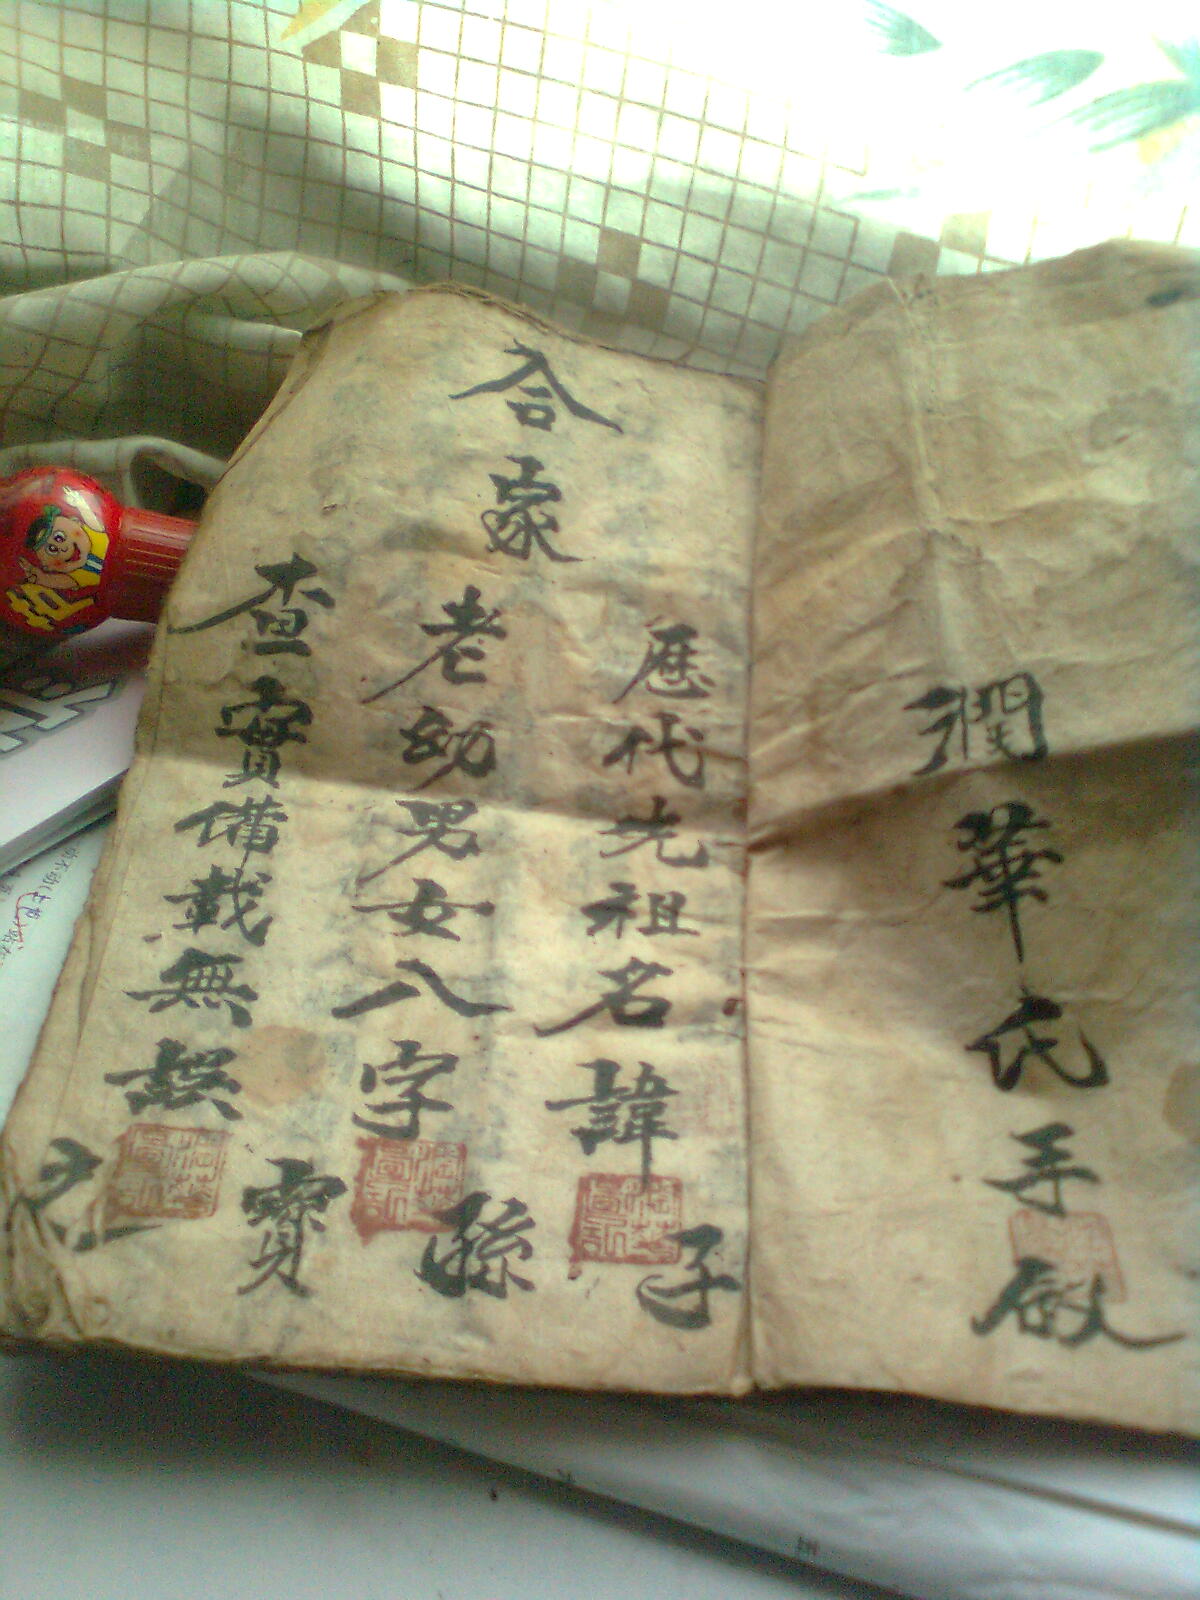 潤華氏手啟
合家
歷代先祖名諱
老幼男女八字
查實備載無誤
子孫寶之